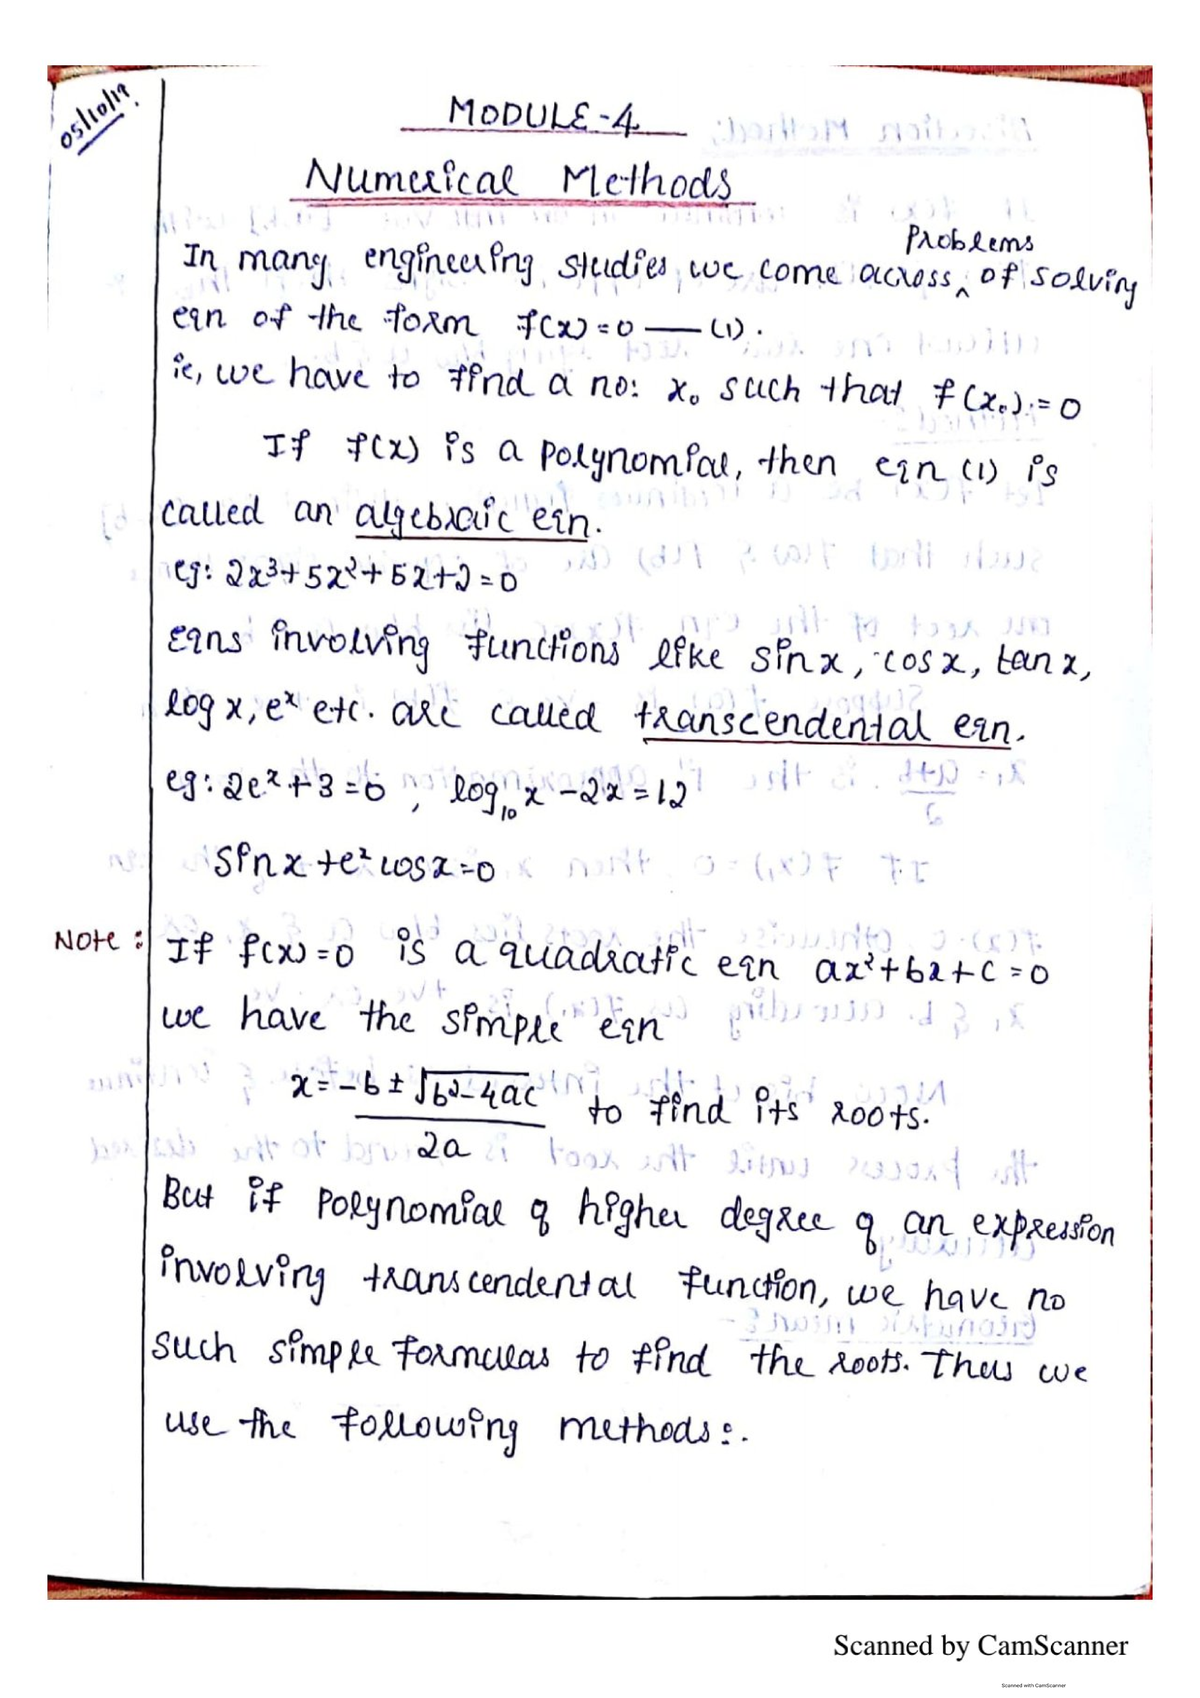 05/10/19.
MODULE-4
Numerical Methods
Problems
In many engineering studies we come across ^ of solving
eqn of the form f(x)=0 — (1).
ie, we have to find a no: x₀ such that f(x₀).=0
If f(x) is a polynomial, then eqn (1) is
called an algebraic eqn.
eg: 2x³+5x²+5x+2=0
Eqns involving functions like sin x, cos x, tan x,
log x, eˣ etc. are called transcendental eqn.
eg: 2eˣ+3=0, log₁₀x-2x=12
sin x+eˣ cosx=0
Note: If f(x)=0 is a quadratic eqn ax²+bx+c=0
we have the simple eqn
x=-b±√b²-4ac to find its roots.
2a
But if polynomial of higher degree of an expression
involving transcendental function, we have no
such simple formulas to find the roots. Thus we
use the following methods:.
Scanned by CamScanner
Scanned with CamScanner